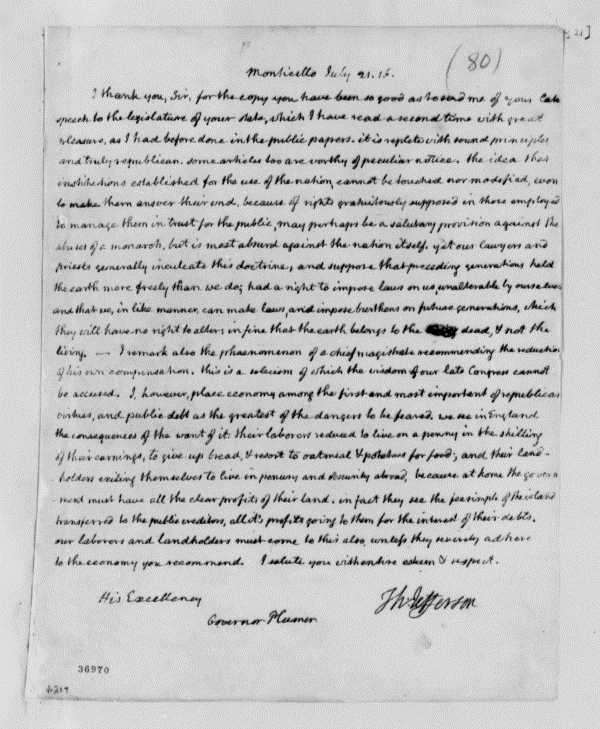 (80)
Monticello July 21. 16.
I thank you, Sir, for the copy you have been so good as to send me of your late
speech to the legislature of your state, which I have read a second time with great
pleasure, as I had before done in the public papers. it is replete with sound principles,
and truly republican. some articles too are worthy of peculiar notice. the idea that
institutions established for the use of the nation, cannot be touched nor modified, even
to make them answer their end, because of rights gratuitously supposed in those employed
to manage them in trust for the public, may perhaps be a salutary provision against the
abuses of a monarch, but is most absurd against the nation itself. yet our lawyers and
priests generally inculcate this doctrine, and suppose that preceding generations held
the earth more freely than we do; had a right to impose laws on us, unalterable by ourselves
and that we, in like manner, can make laws, and impose burthens on future generations, which
they will have no right to alter; in fine that the earth belongs to the dead, & not the
living. — I remark also the phaenomenon of a chief magistrate recommending the reduction
of his own compensation. this is a solecism of which the wisdom of our late Congress cannot
be accused. I, however, place economy among the first and most important of republican
virtues, and public debt as the greatest of the dangers to be feared. we see in England
the consequences of the want of it: their laborers reduced to live on a penny in the shilling
of their earnings, to give up bread, & resort to oatmeal & potatoes for food; and their land-
holders exiling themselves to live in penury and obscurity abroad, because at home the govern
ment must have all the clear profits of their land. in fact they see the fee simple of the island
transferred to the public creditors, all it's profits going to them for the interest of their debts.
our laborers and landholders must come to this also, unless they severely adhere
to the economy you recommend. I salute you with entire esteem & respect.
Th: Jefferson
His Excellency
Governor Plumer
36970